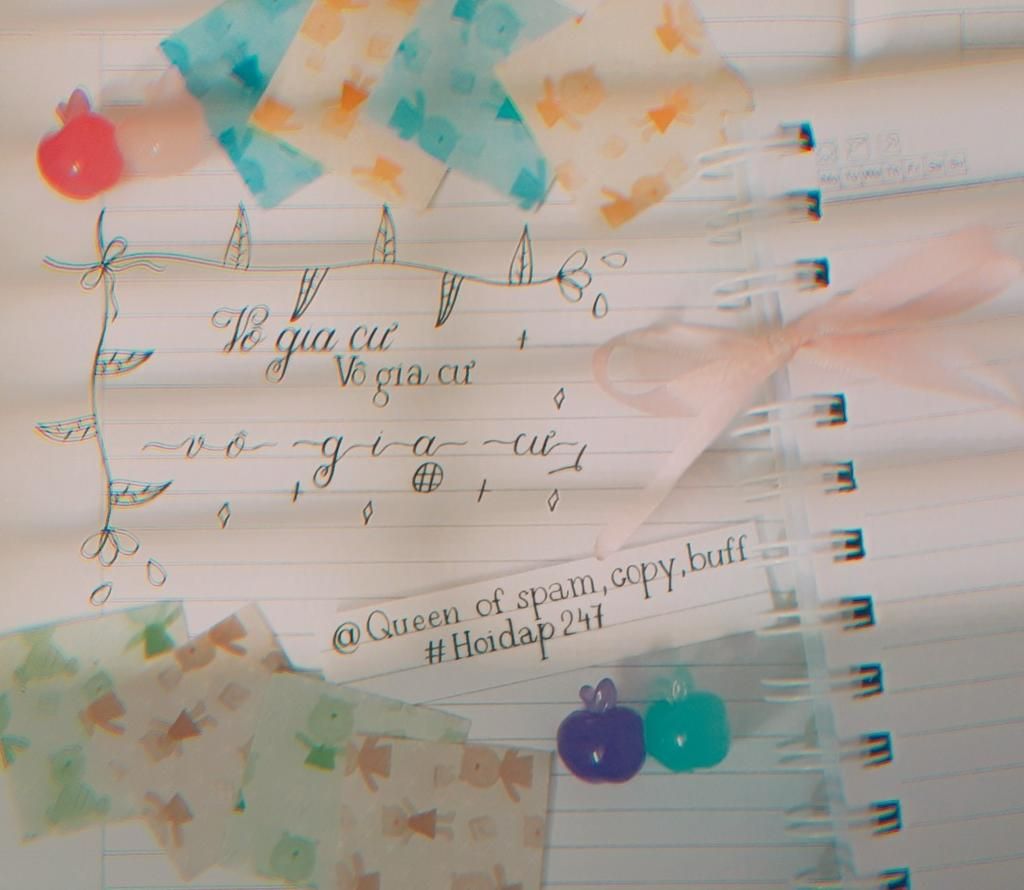 Vô gia cư
Vô gia cư
~vô~ ~gia~ ~cư~
@Queen of spam,copy,buff
#Hoidap247